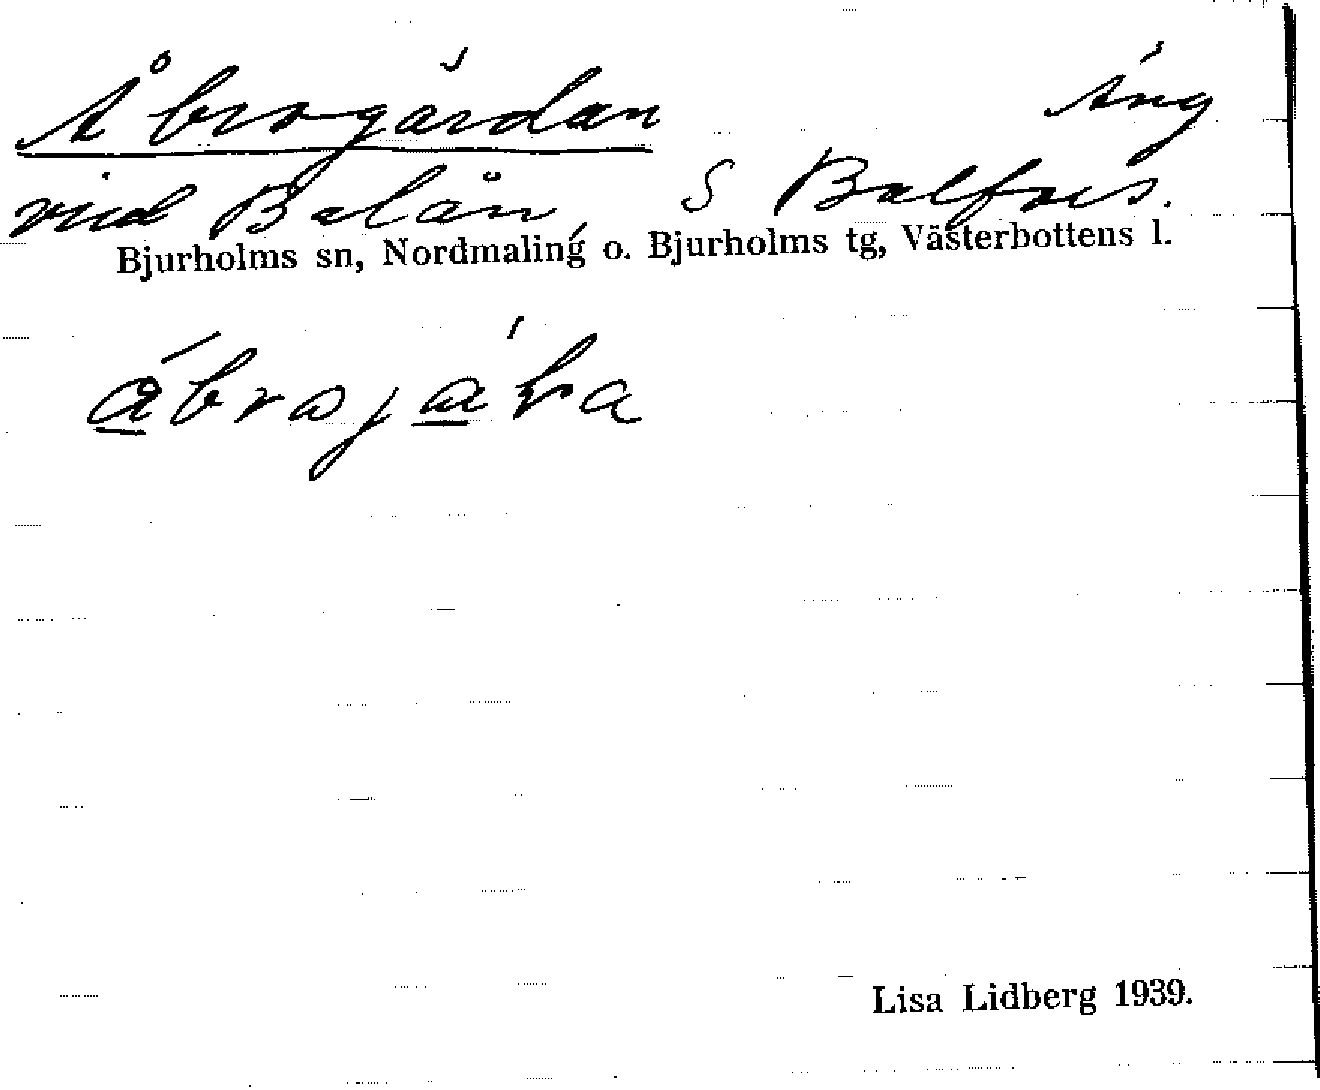 Åbrogärdan Äng
vid Balån, S Balfors.
Bjurholms sn, Nordmaling o. Bjurholms tg, Västerbottens l.
Lisa Lidberg 1939.